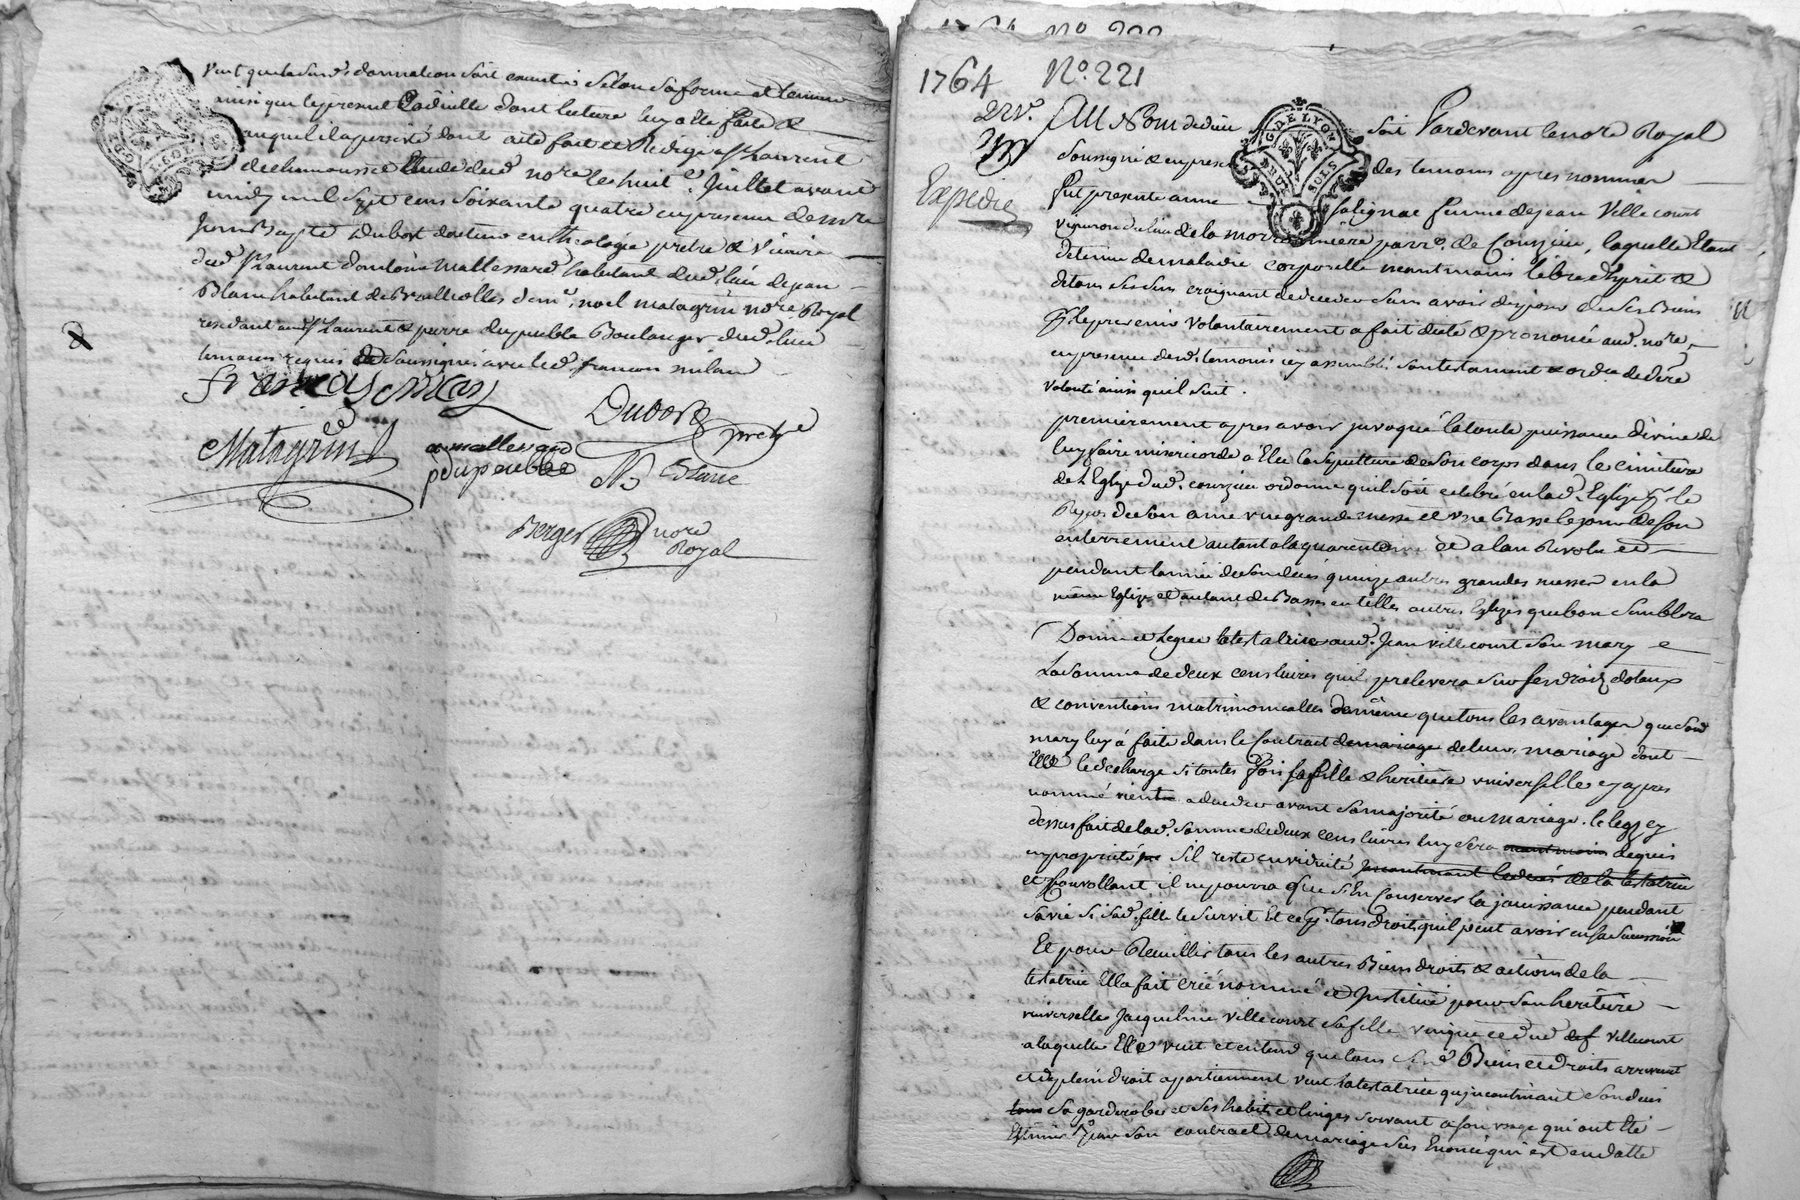 veut que la sus.de donnation soit executée selon sa forme et teneur
ainsi que le present Codicille dont lecture luy a été faite &
auquel il a persisté dont acte fait et Redigé a St Laurent
de chamousset Etude dud. nore le huit e. Juillet avant
midy mil sept cens soixante quatre en presence de mre
Jean Bapte Dubost docteur en theologie prêtre & vicaire
dud. St Laurent d'antoine mallessard habitant dud. lieu de jean
Blanc habitant de Brullioles de me. noel matagrin nore Royal
residant aud. St Laurent & pierre dupeuble Boulanger dud. lieu
temoins requis soussignés avec led. françois
françois
Dubost pretre
Matagrin
amallessard
pdupeuble
Blanc
Berger nore
Royal
1764 No. 221
G. DE LYON
DEUX SOLS
Expedié
AU Nom de dieu soit Pardevant le nore Royal
soussigné & en presence des temoins apres nommés
fut presente anne salignac femme de jean Villecourt
vigneron du lieu de la parre. de Courzieu, laquelle Etant
detenue de maladie corporelle neantmoins libre d'esprit &
de tous ses sens craignant de deceder sans avoir disposé de ses Biens
pr. le prevenir volontairement a fait dicté & prononcé aud. nore
en presence desd. temoins icy assemblés son testament & ordre de dere
volonté ainsi quil suit.
premierement apres avoir invoqué la toute puissance divine de
luy faire misericorde a Elu la sepulture de son corps dans le cimitiere
de l'Eglize dud. courzieu ordonne quil soit celebré en lad. Eglize pr. le
Repos de son ame une grande messe et une Basse le jour de son
enterrement autant a la quarentaine et a l'an Revolu et
pendant l'année de son decés quinze autres grandes messes en la
même Eglize et autant de Basses en telles autres Eglizes que bon semblera
Donne et Legue la testatrice aud. Jean villecourt son mary
La somme de deux cens livres quil prelevera sur ses droits dotaux
& conventions matrimonialles de même que tous les avantages que son
mary luy a faits dans le Contract de mariage de leur mariage dont
Elle le decharge si toutes fois sa fille & heritiere universelle cy apres
nommée vient a deceder avant sa majorité ou mariage. le legs cy
dessus fait de lad. somme de deux cens livres luy sera neantmoins acquis
en propriété s'il reste en viduité incontinant le decés de la testatrice
et Convollant il ne poura que s'En Conserver la jouissance pendant
sa vie si sad. fille le survit Et ce pr. tous droits quil peut avoir en sa succession
Et pour Recuillir tous les autres Biens droits & actions de la
testatrice Ella fait créé nommé et Institué pour son heritiere
universelle Jacqueline villecourt sa fille unique et dud. villecourt
a laquelle Elle veut et entend que tous sesd. Biens et droits arrivent
et de plein droit appartiennent veut la testatrice qu'incontinant son decés
sa garderobe et ses habits et linges servant a son usage qui ont été
Estimés par son contract de mariage sus Enoncé qui est en datte